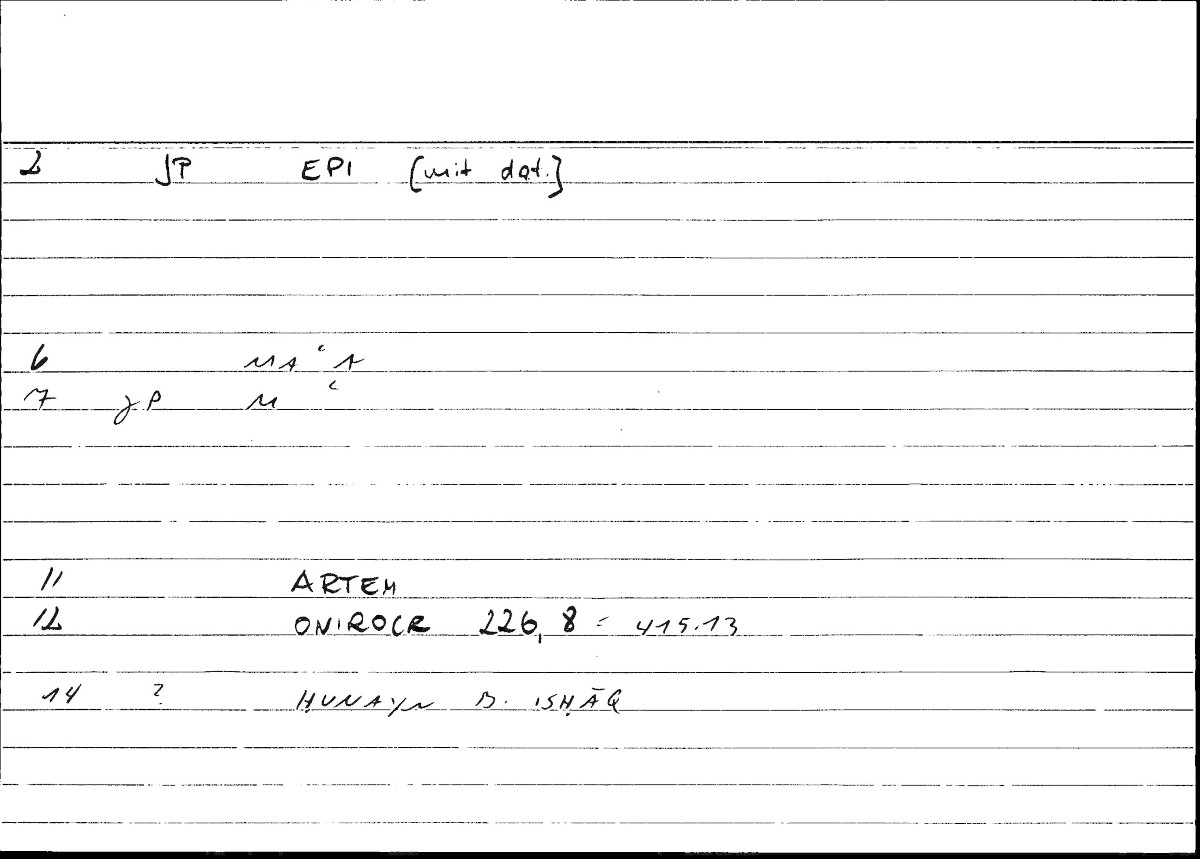 2 JP EPI [mit dat.]
6 MAʿA
7 JP Mʿ
11 ARTEM
12 ONIROCR 226,8 = 415.13
14 ? ḤUNAYN B. ISḤĀQ